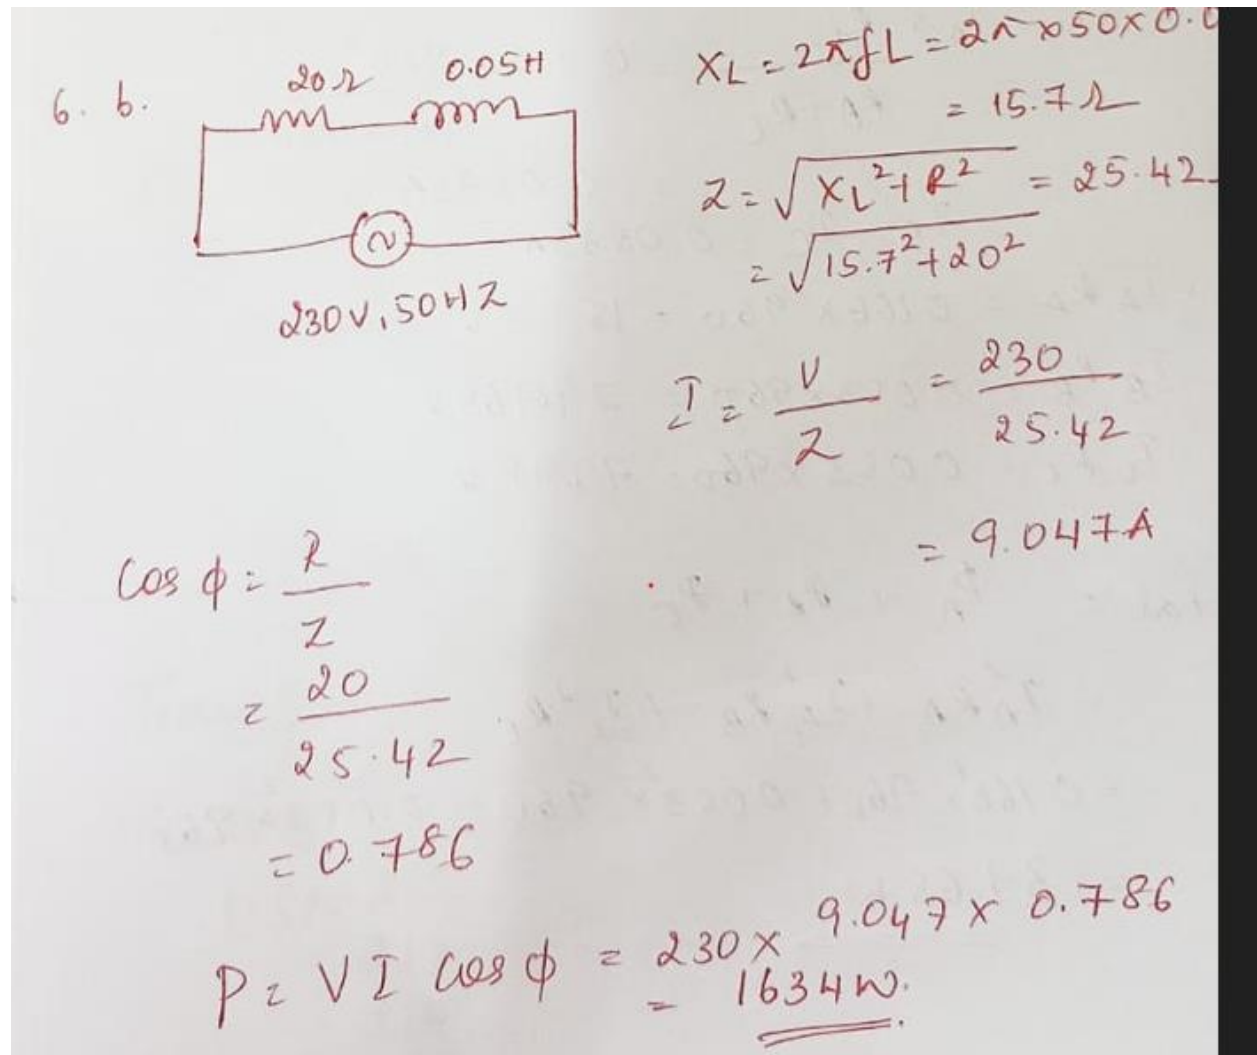 6. b.
20Ω 0.05H
230V, 50HZ
XL = 2πfL = 2π×50×0.0
= 15.7Ω
Z = √XL²+R² = 25.42
= √15.7²+20²
I = V/Z = 230/25.42
= 9.047A
Cos φ = R/Z
= 20/25.42
= 0.786
P = VI Cos φ = 230 × 9.047 × 0.786
= 1634W.